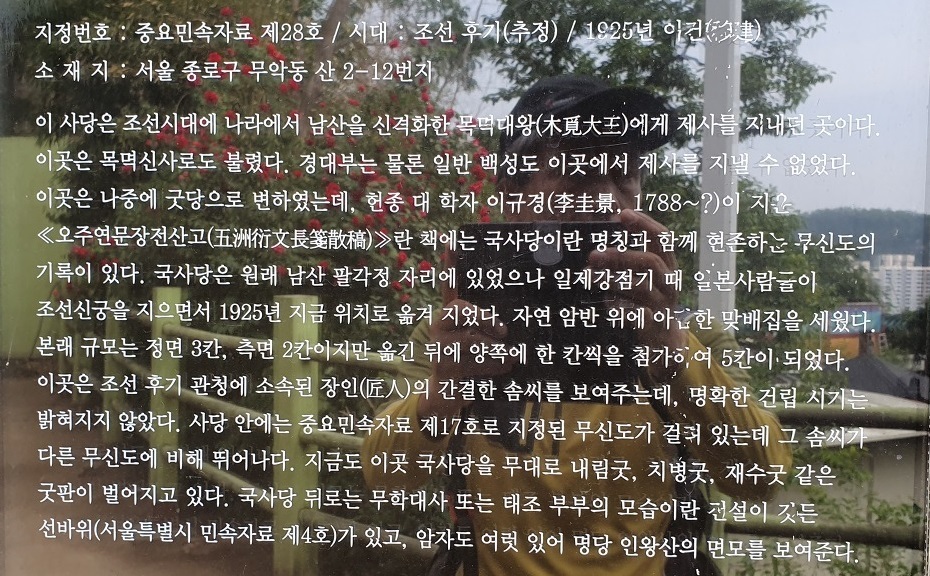 지정번호 : 중요민속자료 제28호 / 시대 : 조선 후기(추정) / 1925년 이건(移建)
소 재 지 : 서울 종로구 무악동 산 2-12번지
이 사당은 조선시대에 나라에서 남산을 신격화한 목멱대왕(木覓大王)에게 제사를 지내던 곳이다.
이곳은 목멱신사로도 불렸다. 경대부는 물론 일반 백성도 이곳에서 제사를 지낼 수 없었다.
이곳은 나중에 굿당으로 변하였는데, 헌종 대 학자 이규경(李圭景, 1788~?)이 지은
≪오주연문장전산고(五洲衍文長箋散稿)≫란 책에는 국사당이란 명칭과 함께 현존하는 무신도의
기록이 있다. 국사당은 원래 남산 팔각정 자리에 있었으나 일제강점기 때 일본사람들이
조선신궁을 지으면서 1925년 지금 위치로 옮겨 지었다. 자연 암반 위에 아담한 맞배집을 세웠다.
본래 규모는 정면 3칸, 측면 2칸이지만 옮긴 뒤에 양쪽에 한 칸씩을 첨가하여 5칸이 되었다.
이곳은 조선 후기 관청에 소속된 장인(匠人)의 간결한 솜씨를 보여주는데, 명확한 건립 시기는
밝혀지지 않았다. 사당 안에는 중요민속자료 제17호로 지정된 무신도가 걸려 있는데 그 솜씨가
다른 무신도에 비해 뛰어나다. 지금도 이곳 국사당을 무대로 내림굿, 치병굿, 재수굿 같은
굿판이 벌어지고 있다. 국사당 뒤로는 무학대사 또는 태조 부부의 모습이란 전설이 깃든
선바위(서울특별시 민속자료 제4호)가 있고, 암자도 여럿 있어 명당 인왕산의 면모를 보여준다.